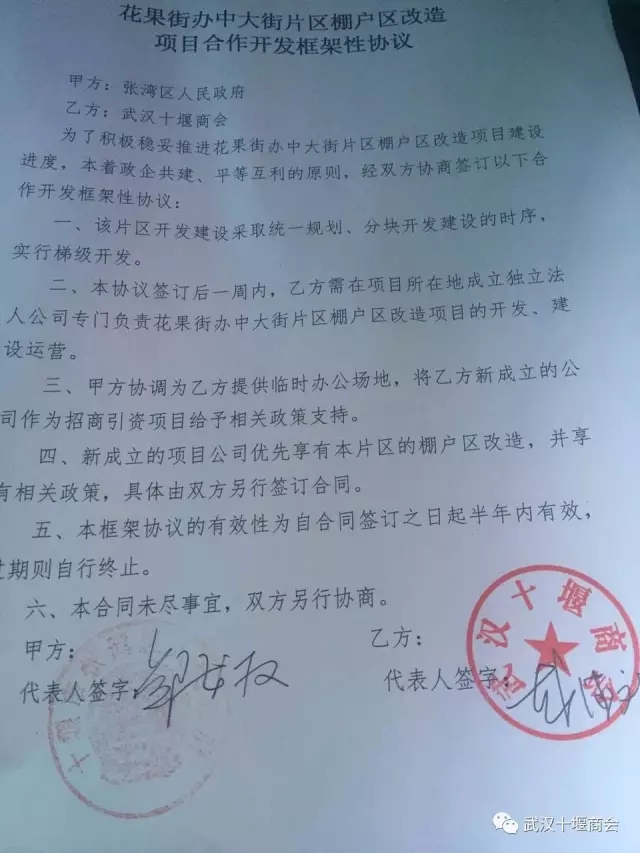 花果街办中大街片区棚户区改造
项目合作开发框架性协议
甲方：张湾区人民政府
乙方：武汉十堰商会
为了积极稳妥推进花果街办中大街片区棚户区改造项目建设
进度，本着政企共建、平等互利的原则，经双方协商签订以下合
作开发框架性协议：
一、该片区开发建设采取统一规划、分块开发建设的时序，
实行梯级开发。
二、本协议签订后一周内，乙方需在项目所在地成立独立法
人公司专门负责花果街办中大街片区棚户区改造项目的开发、建
设运营。
三、甲方协调为乙方提供临时办公场地，将乙方新成立的公
司作为招商引资项目给予相关政策支持。
四、新成立的项目公司优先享有本片区的棚户区改造，并享
有相关政策，具体由双方另行签订合同。
五、本框架协议的有效性为自合同签订之日起半年内有效，
过期则自行终止。
六、本合同未尽事宜，双方另行协商。
甲方：
乙方：
代表人签字：
代表人签字：
武汉十堰商会
十堰
武汉十堰商会